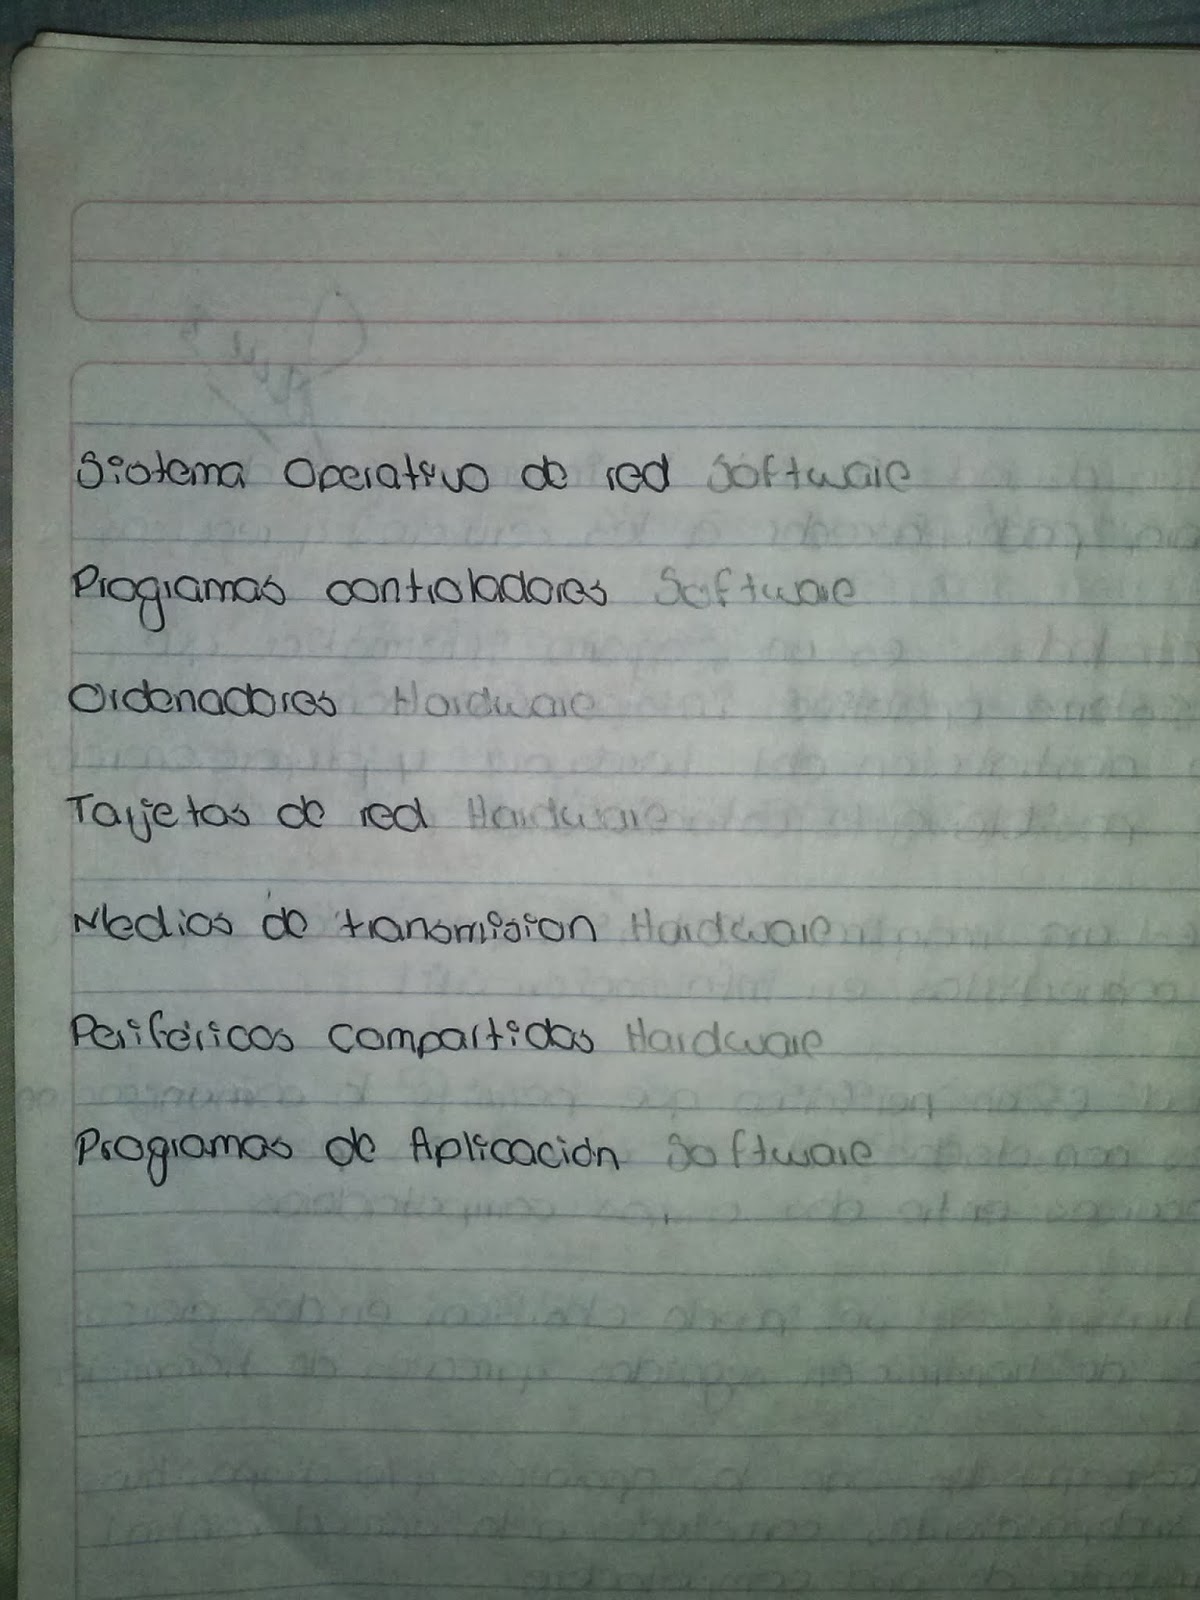 Sistema Operativo de red Software
Programas controladores Software
Ordenadores Hardware
Tarjetas de red Hardware
Medios de transmision Hardware
Periféricos compartidos Hardware
Programas de Aplicación Software